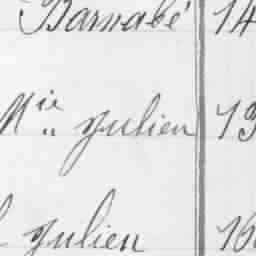 Barnabé 14
Mie Julien 13
Julien 16